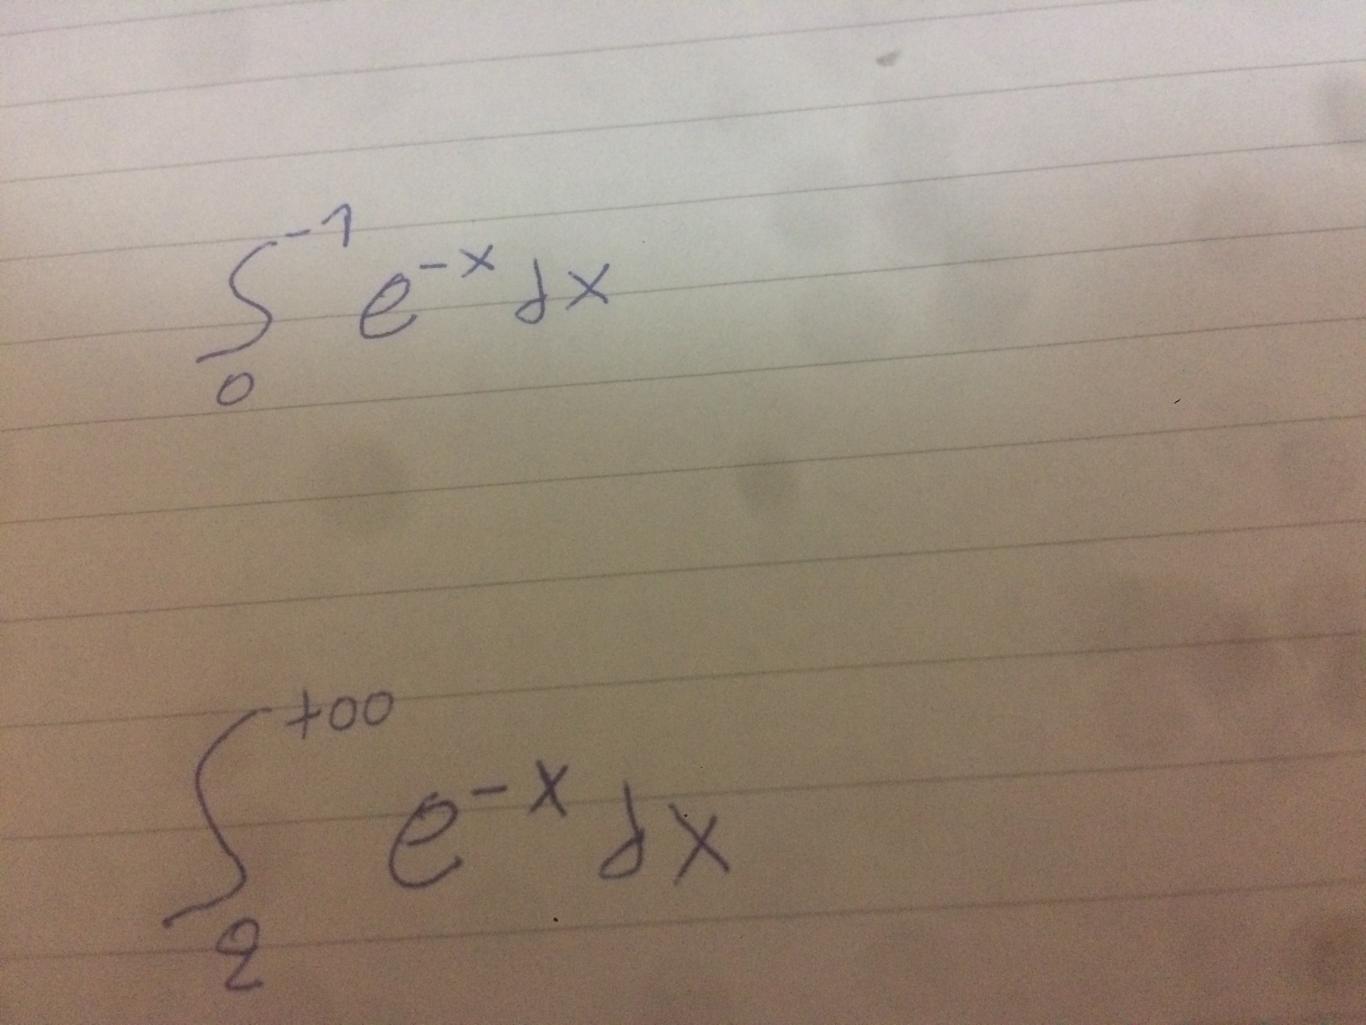 ∫₀⁻¹ e⁻ˣ dx
∫₂⁺∞ e⁻ˣ dx